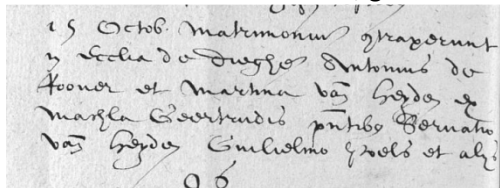 15 Octob. Matrimoniu contraxerunt
in Ecclia de Dieghe Antonius de
Kooner et Martina van Heyden ex
Machla Geertrudis pntibus Servatio
van Heyden Guilielmo et alys
96